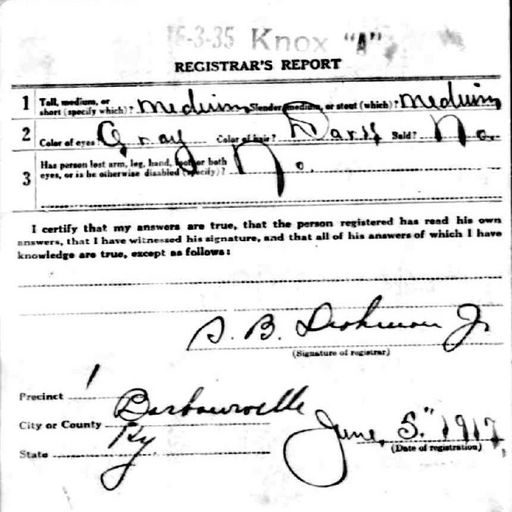 15-3-35 Knox "A"
REGISTRAR'S REPORT
1 Tall, medium, or short (specify which)? Medium Slender, medium, or stout (which)? Medium
2 Color of eyes? Gray Color of hair? Dark Bald? No
3 Has person lost arm, leg, hand, foot, or both
eyes, or is he otherwise disabled (specify)? No.
I certify that my answers are true, that the person registered has read his own
answers, that I have witnessed his signature, and that all of his answers of which I have
knowledge are true, except as follows:
S. B. Dishman Jr
(Signature of registrar)
Precinct 1
City or County Barbourville
State Ky
June, 5." 1917
(Date of registration)